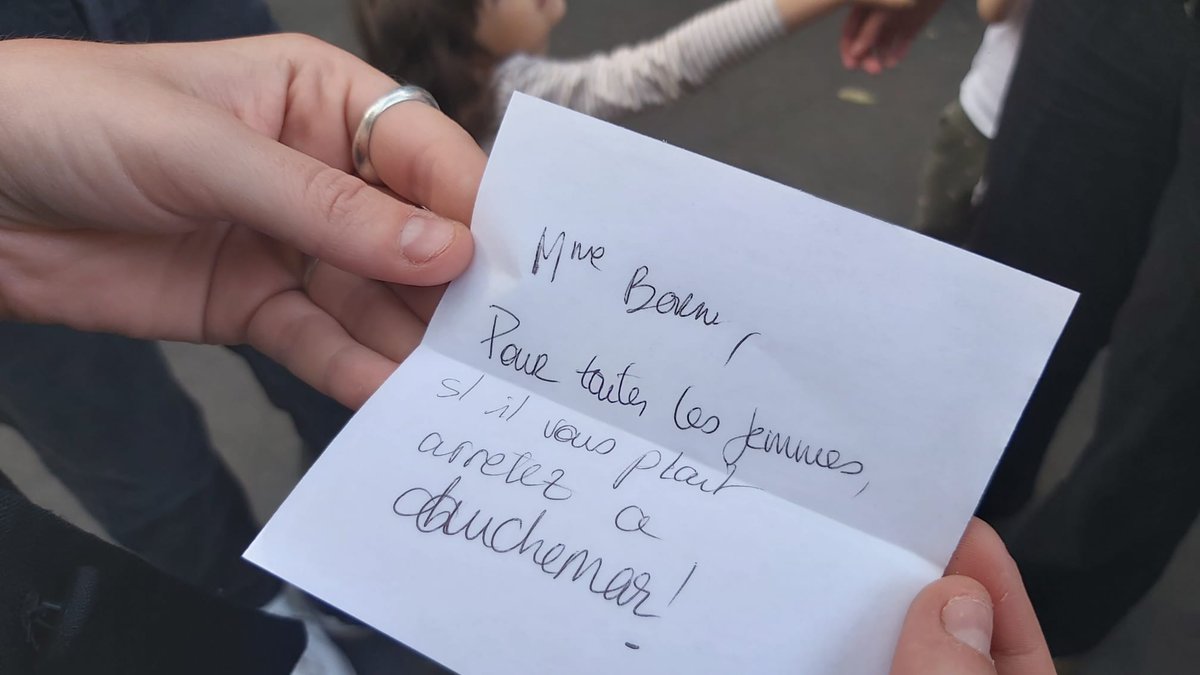 Mme Borne,
Pour toutes les femmes,
s' il vous plait
arretez ce
cauchemar !